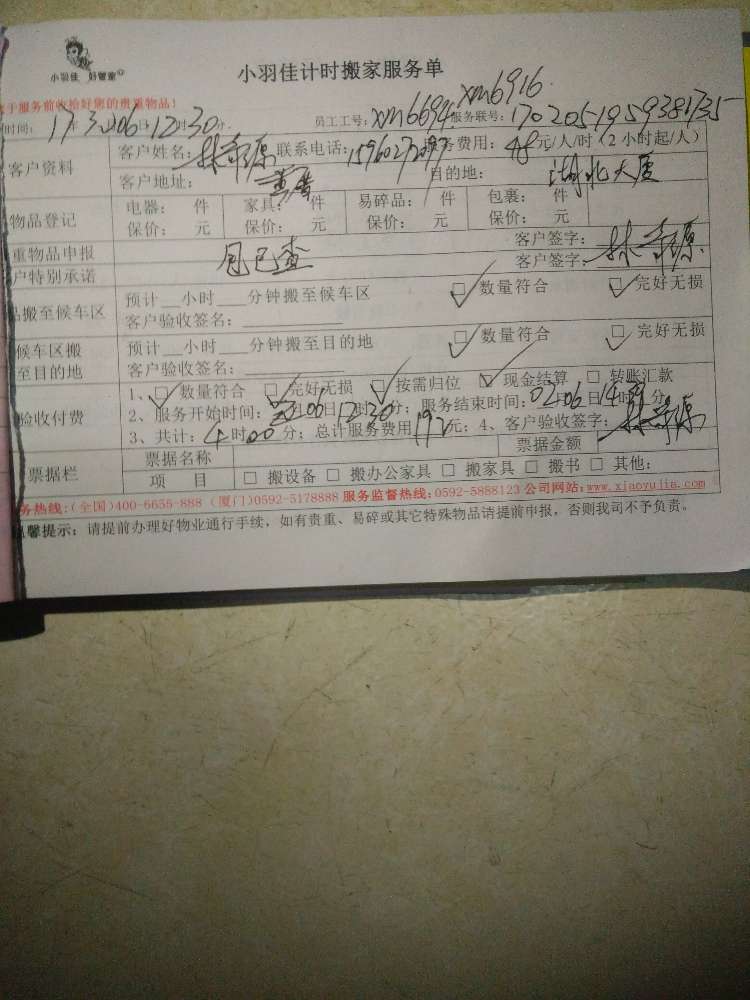 小羽佳 好管家
小羽佳计时搬家服务单
于服务前收拾好您的贵重物品!
时间: 17年 06日12时30分 员工工号: xm6694 xm6916 服务联号: 1702051959381735
客户资料 客户姓名: 林 源 联系电话: 服务费用: 48元/人/时(2小时起/人)
客户地址: 目的地: 湖北大厦
物品登记 电器: 件 家具: 件 易碎品: 件 包裹: 件
保价: 元 保价: 元 保价: 元 保价: 元
重物品申报 包已查 客户签字: 林 源
户特别承诺 客户签字:
品搬至候车区 预计__小时___分钟搬至候车区 □ 数量符合 □ 完好无损
客户验收签名:
候车区搬至目的地 预计__小时___分钟搬至目的地 □ 数量符合 □ 完好无损
客户验收签名:
验收付费 1、□ 数量符合 □ 完好无损 □ 按需归位 □ 现金结算 □ 转账汇款
2、服务开始时间: 月06日12时30分; 服务结束时间: 02月06日14时 分;
3、共计: 4时00分; 总计服务费用192元; 4、客户签字: 林 源
票据栏 票据名称 票据金额
项 目 □ 搬设备 □ 搬办公家具 □ 搬家具 □ 搬书 □ 其他:
务热线:(全国)400-6655-888 (厦门)0592-5178888 服务监督热线:0592-5888123 公司网站:www.xiaoyujia.com
温馨提示: 请提前办理好物业通行手续, 如有贵重、易碎或其它特殊物品请提前申报, 否则我司不予负责。